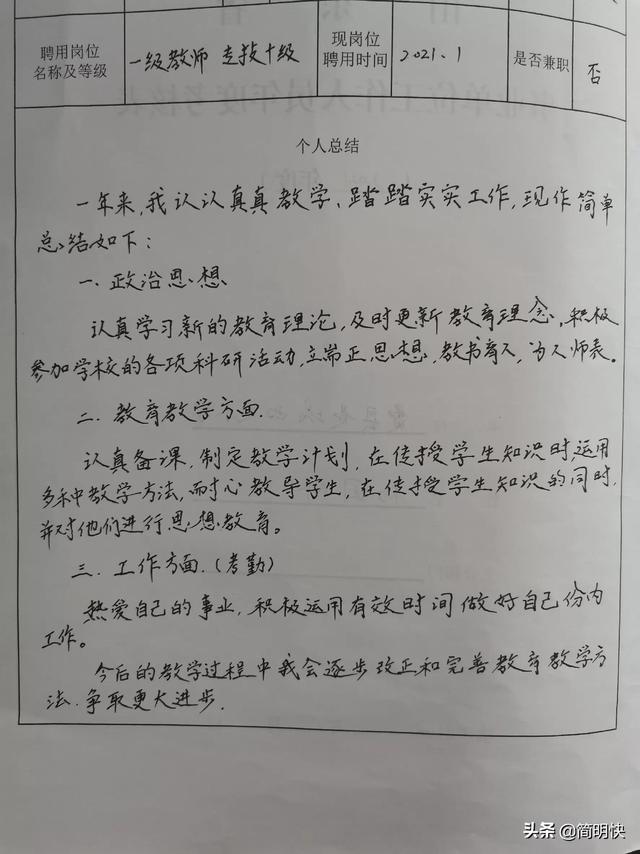 聘用岗位
名称及等级
一级教师 专技十级
现岗位
聘用时间
2021、1
是否兼职
否
个人总结
一年来,我认认真真教学、踏踏实实工作,现作简单
总结如下:
一、政治思想
认真学习新的教育理论,及时更新教育理念,积极
参加学校的各项科研活动,立端正思想,教书育人,为人师表。
二、教育教学方面.
认真备课,制定教学计划,在传授学生知识时,运用
多种教学方法,耐心教导学生,在传授学生知识的同时,
并对他们进行思想教育。
三、工作方面.(考勤)
热爱自己的事业,积极运用有效时间做好自己份内
工作。
今后的教学过程中我会逐步改正和完善教育教学方
法.争取更大进步.
头条 @简明快